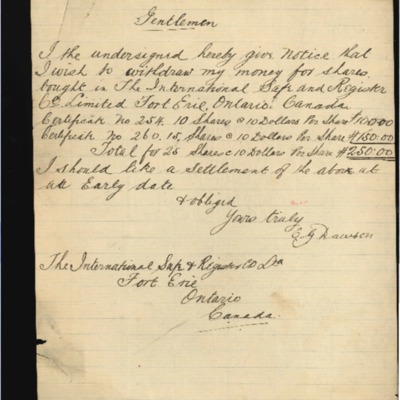 Gentlemen
I the undersigned hereby give Notice that
I wish to withdraw my money for shares
bought in The International Safe and Register
Co. Limited Fort Erie, Ontario. Canada
Certificate No 254. 10 Shares @ 10 Dollars Per Share $100.00
Certificate No 260. 15, Shares @ 10 Dollars Per Share $150.00
Total for 25 Shares @ 10 Dollars Per Share $250.00
I should like a Settlement of the above at
an Early date
& obliged
Yours truly
Dawson
The International Safe & Register Co Ltd
Fort Erie
Ontario
Canada